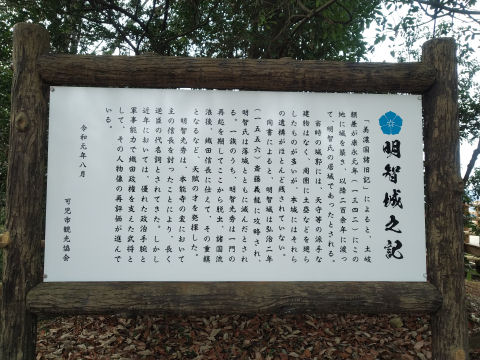 明智城之記
「美濃国諸旧記」によると、土岐
頼兼が康永元年(一三四二)にこの
地に城を築き、以降二百余年に渡っ
て、明智氏の居城であったとされる。
当時の城郭には、天守等の派手な
建物はなく、周囲に土塁などを廻ら
したものが多いが、本城にはそれら
の遺構がほとんど残されていない。
同書によると、明智城は弘治二年
(一五五六)斎藤義龍に攻略され、
明智氏は落城とともに滅んだとされ
る。一族のうち、明智光秀は一門の
再起を期してここから脱出、諸国流
浪後、織田信長に仕えて、その重鎮
となるなど、天賦の才を発揮した。
明智光秀は、本能寺の変において
主の信長を討ったことにより、長く
逆臣の代名詞とされてきた。しかし
近年においては、優れた政治手腕と
軍事能力で織田政権を支えた武将と
して、その人物像の再評価が進んで
いる。
令和元年八月
可児市観光協会